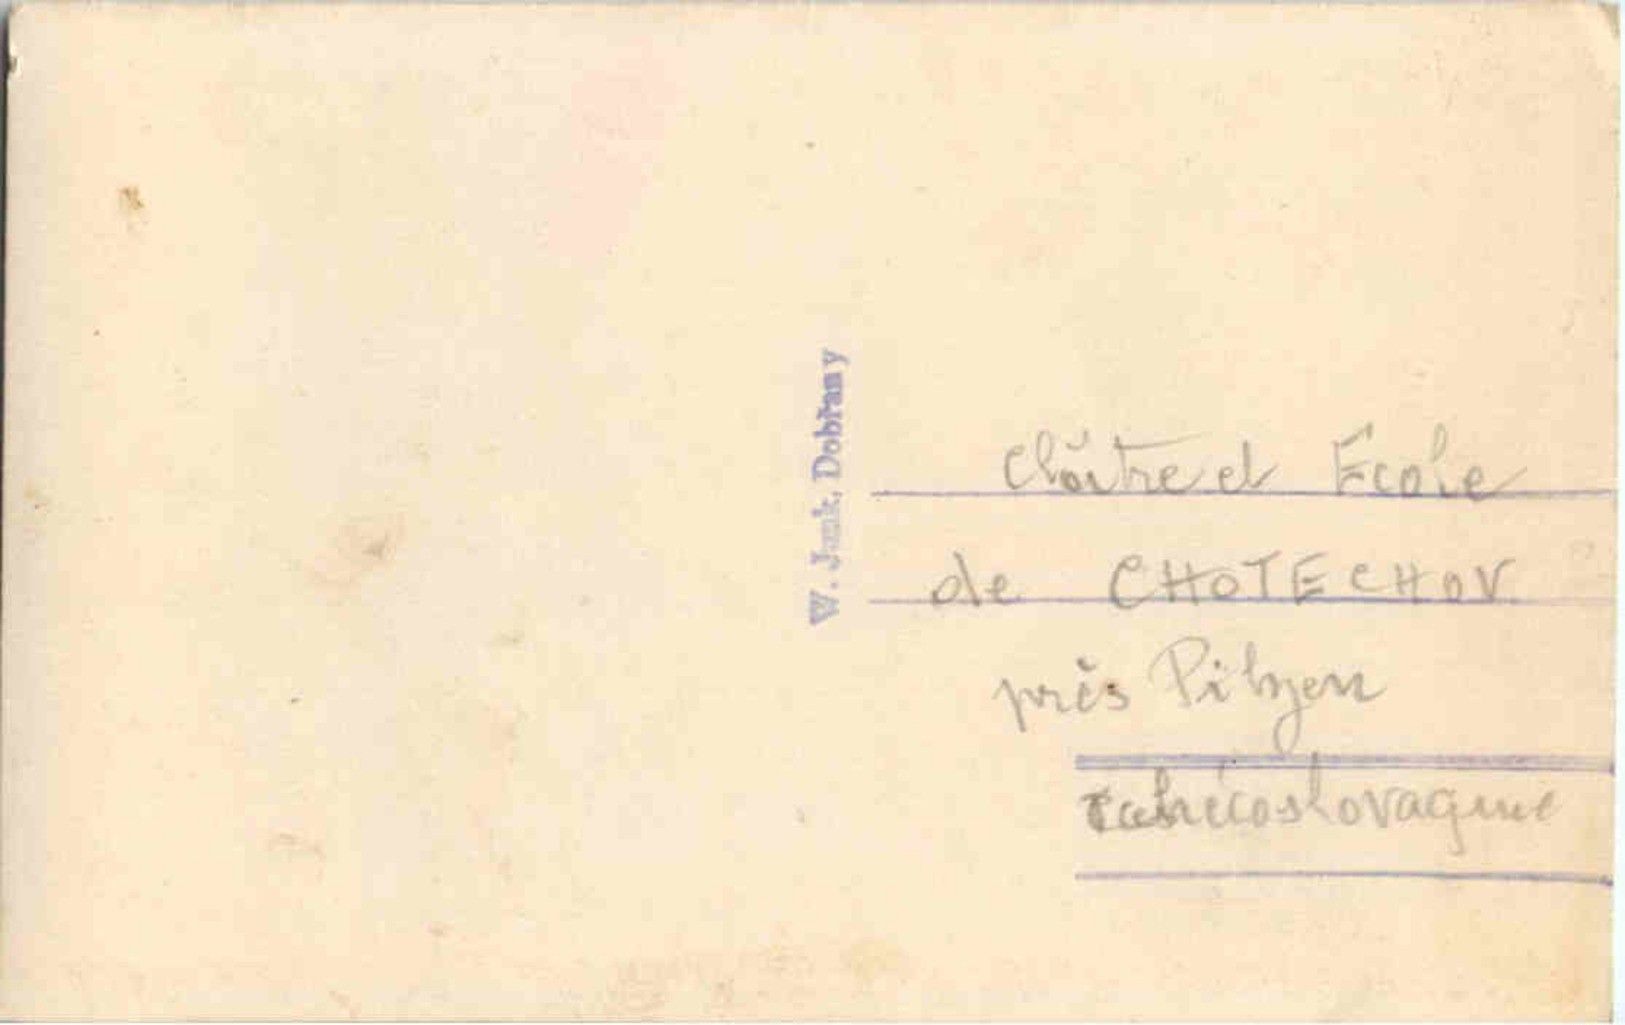 W. Junk, Dobřany
Cloître et École
de CHOTECHOV
près Pilzen
Tchécoslovaquie